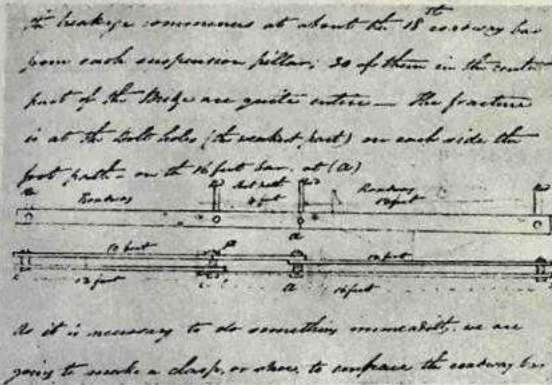 breakage commences at about the 18th roadway bar
from each suspension pillar; 30 of them in the centre
part of the Bridge are quite entire — The fracture
is at the bolt holes (the weakest part) on each side the
foot path — on the 16 feet bar, at (a)
Roadway foot path 4 feet Roadway 12 feet
a
12 feet 12 feet
12 feet a 16 feet
As it is necessary to do something immediately, we are
going to make a clasp, or shoe, to embrace the roadway bar